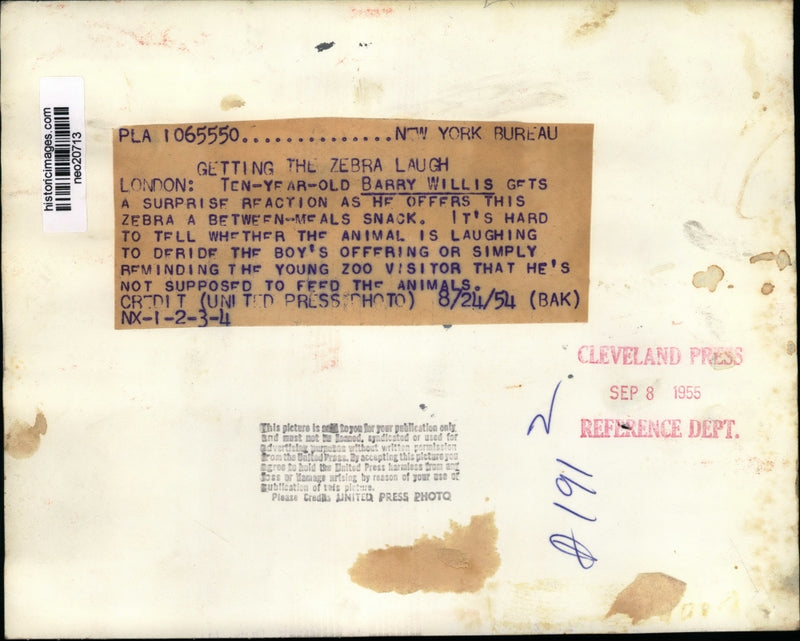 historicimages.com
neo20713
PLA 1065550...............NEW YORK BUREAU
GETTING THE ZEBRA LAUGH
LONDON: TEN-YEAR-OLD BARRY WILLIS GETS
A SURPRISE REACTION AS HE OFFERS THIS
ZEBRA A BETWEEN-MEALS SNACK. IT'S HARD
TO TELL WHETHER THE ANIMAL IS LAUGHING
TO DERIDE THE BOY'S OFFERING OR SIMPLY
REMINDING THE YOUNG ZOO VISITOR THAT HE'S
NOT SUPPOSED TO FEED THE ANIMALS.
CREDIT (UNITED PRESS PHOTO) 8/24/54 (BAK)
NX-1-2-3-4
CLEVELAND PRESS
SEP 8 1955
REFERENCE DEPT.
This picture is sold to you for your publication only
and must not be loaned, syndicated or used for
advertising purposes without written permission
from the United Press. By accepting this picture you
agree to hold the United Press harmless from any
loss or damage arising by reason of your use or
publication of this picture.
Please Credit UNITED PRESS PHOTO
191 2